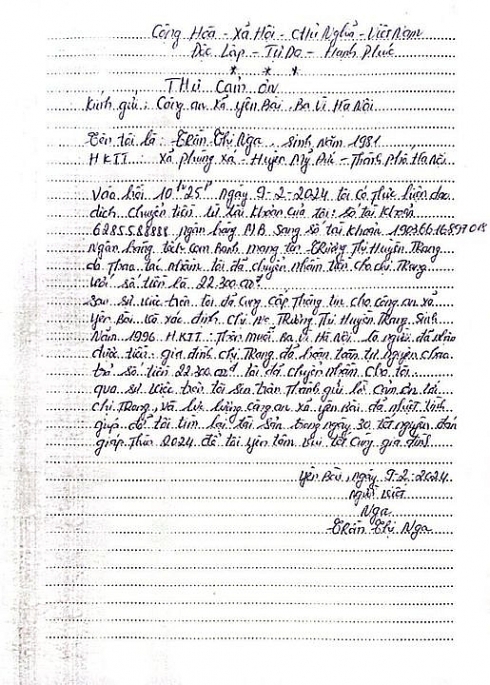 Cộng Hòa - Xã Hội - Chủ Nghĩa - Việt Nam
Độc Lập - Tự Do - Hạnh Phúc
* * *
Thư cảm ơn
Kính gửi: Công an xã Yên Bài, Ba Vì Hà Nội
Tên tôi là: Trần Thị Nga, Sinh năm 1981
HKTT: Xã Phùng Xá - Huyện Mỹ Đức - Thành Phố Hà Nội
Vào hồi 10h25p ngày 9-2-2024 tôi có thực hiện dao
dịch chuyển tiền từ tài khoản của tôi: số tài khoản
6285588888 ngân hàng MB sang số tài khoản 19036616897018
ngân hàng tech com bank mang tên Trương Thị Huyền Trang
do thao tác nhầm tôi đã chuyển nhầm tiền cho chị Trang
với số tiền là 22.300.000đ
Sau sự việc trên tôi đã cung cấp thông tin cho công an xã
Yên Bài và xác định chị Trương Thị Huyền Trang sinh
năm 1996 HKTT: Thôn muỗi Ba Vì Hà Nội là người đã nhận
được tiền. gia đình chị Trang đã hoàn toàn tự nguyện trao
trả số tiền 22.300.000đ tôi đã chuyển nhầm cho tôi
qua sự việc trên tôi xin trân thành gửi lời cảm ơn tới
chị Trang, và lực lượng công an xã Yên Bài đã nhiệt tình
giúp đỡ tôi tìm lại tài sản trong ngày 30 tết nguyên đán
giáp thìn 2024 để tôi yên tâm vui tết cùng gia đình
Yên Bài, ngày 9-2-2024
người viết
Nga
Trần Thị Nga